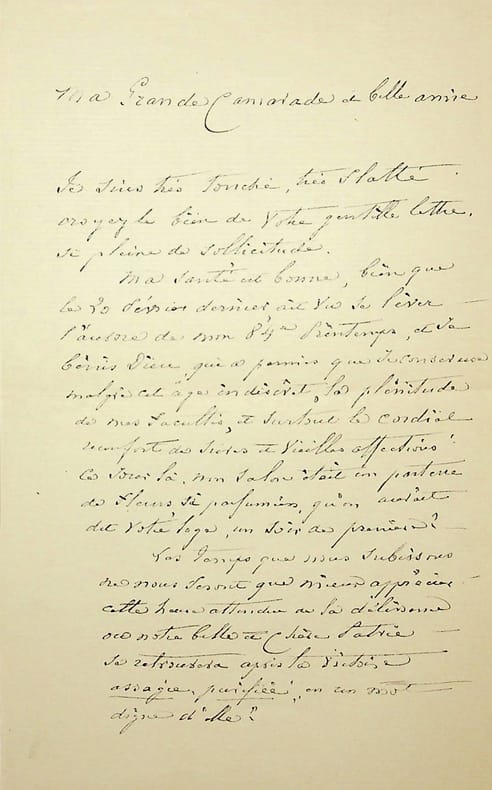 Ma Grande Camarade et belle amie
Je suis très touché, très flatté
croyez le bien de votre gentille lettre,
si pleine de sollicitude.
Ma santé est bonne, bien que
le 20 février dernier ait vu se lever
l'aurore de mon 84me Printemps, et je
bénis Dieu, qui a permis que je conserve
malgré cet âge indiscret, la plénitude
de mes facultés, et surtout le cordial
réconfort de sûres et vieilles affections !
Ce soir là, mon salon était un parterre
de fleurs si parfumées, qu'on aurait
dit votre loge, un soir de première !
Les temps que nous subissons
ne nous feront que mieux apprécier
cette heure attendue de la délivrance
où notre belle et chère Patrie
se retrouvera après la Victoire
assagie, purifiée, en un mot
digne d'Elle !